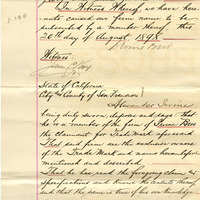 In Witness Whereof, we have here-
unto caused our firm name to be
subscribed by a member thereof this
20th day of August 1898.
Witness
State of California
City and County of San Francisco
being duly sworn, deposes and says: that
he is a member of the firm of
the claimant for Trade Mark aforesaid
That said firm are the exclusive owners
of the Trade Mark and name hereinbefore
mentioned and described
That he has read the foregoing claim and
specifications and knows the contents thereof
and that the same is true of his own knowledge